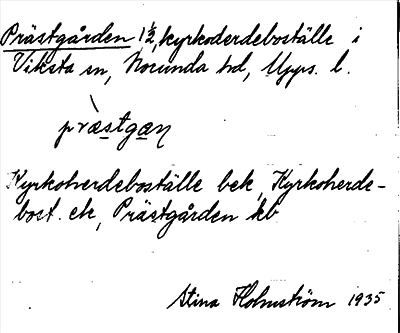 Prästgården, 1 1/2, kyrkoderdeboställe i
Viksta sn, Norunda hd, Upps. l.
præstgan
Kyrkoherdeboställe bek, Kyrkoherde-
bost. ek, Prästgården kb
Stina Holmström 1935